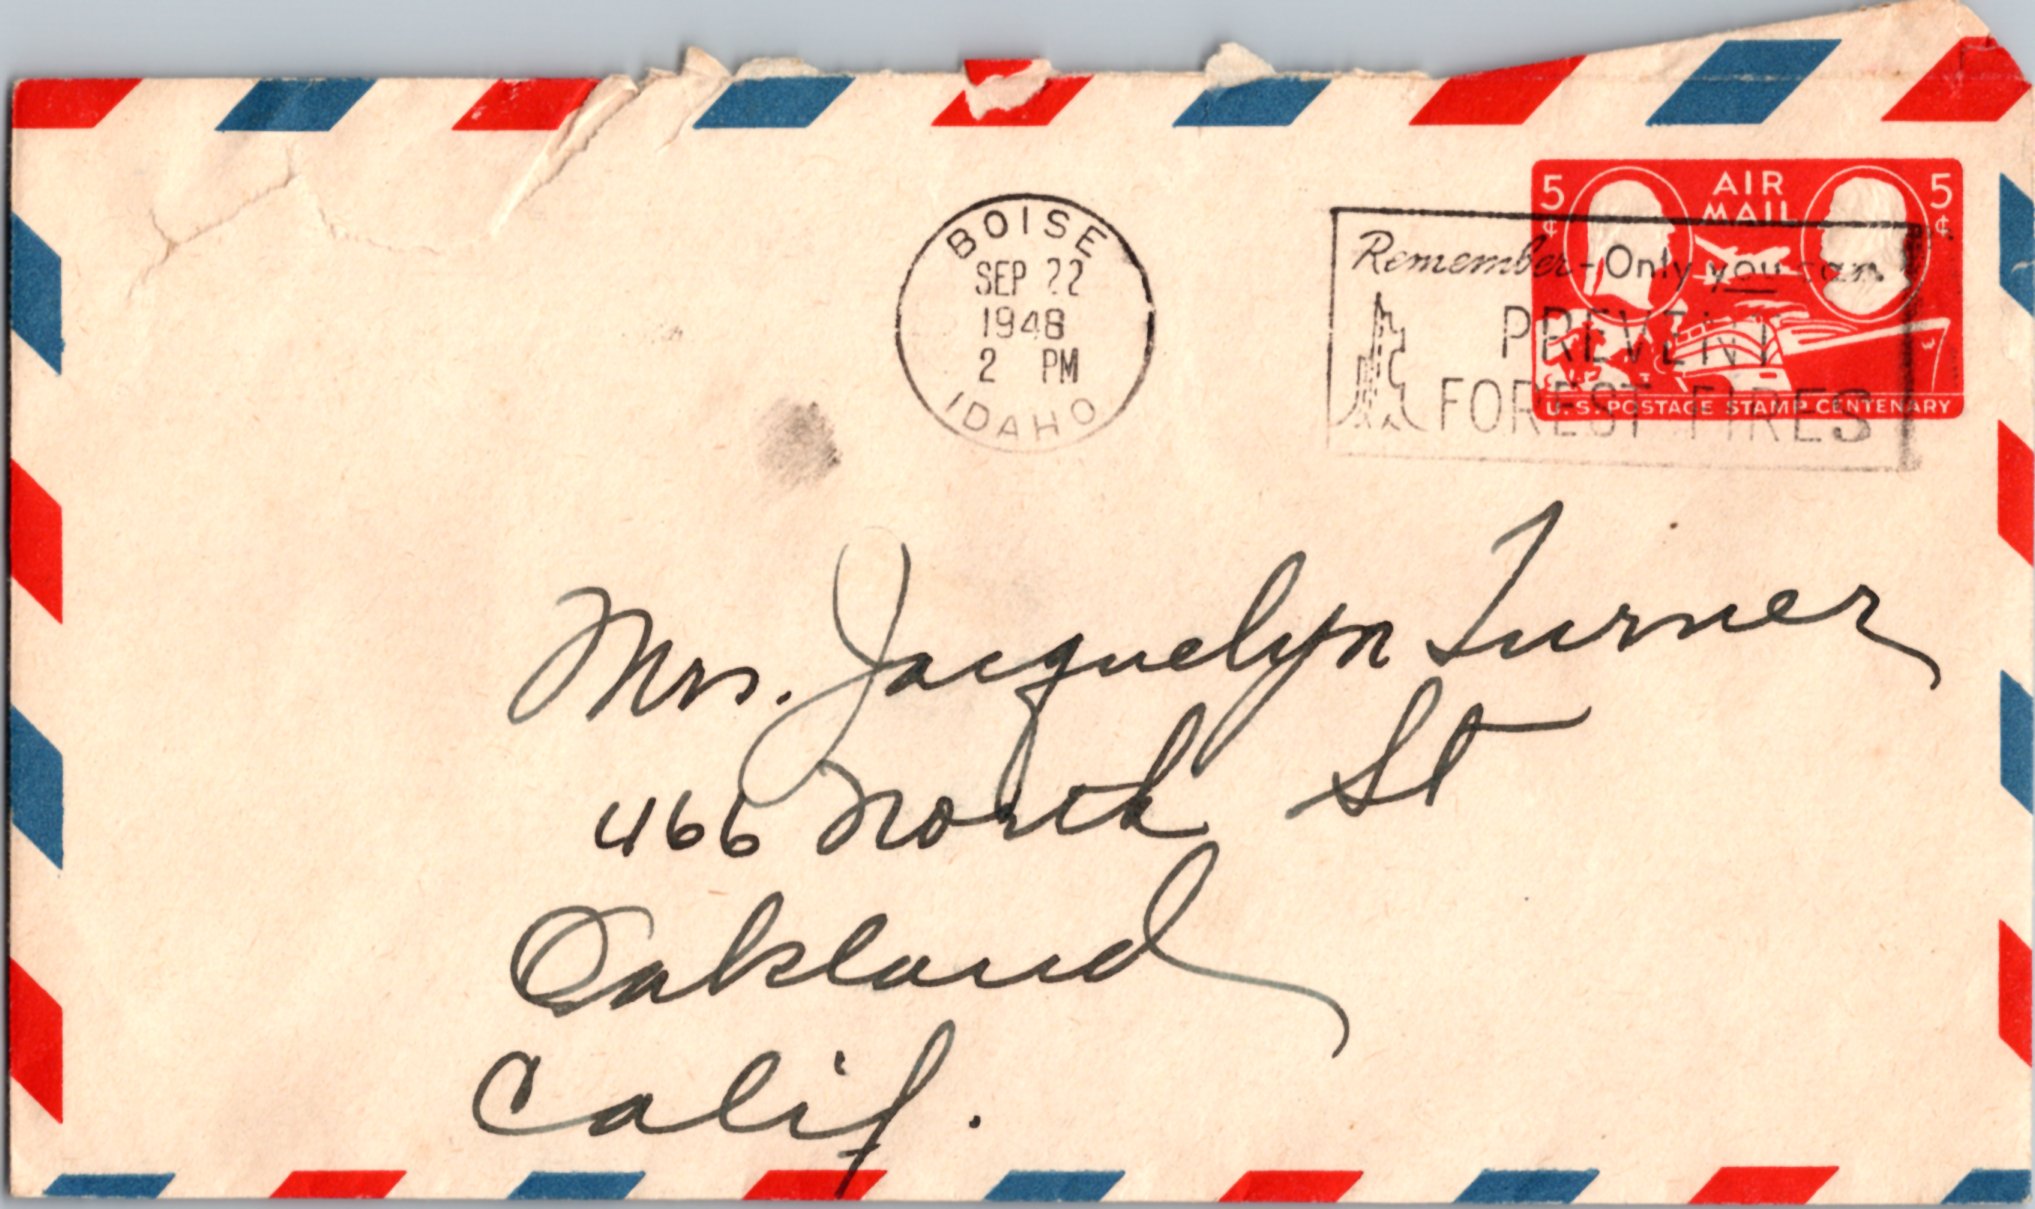 BOISE
SEP 22
1948
2 PM
IDAHO
5¢ AIR MAIL 5¢
U.S. POSTAGE STAMP CENTENARY
Remember - Only you can
PREVENT
FOREST FIRES
Mrs. Jacquelyn Turner
466 North St
Oakland
Calif.